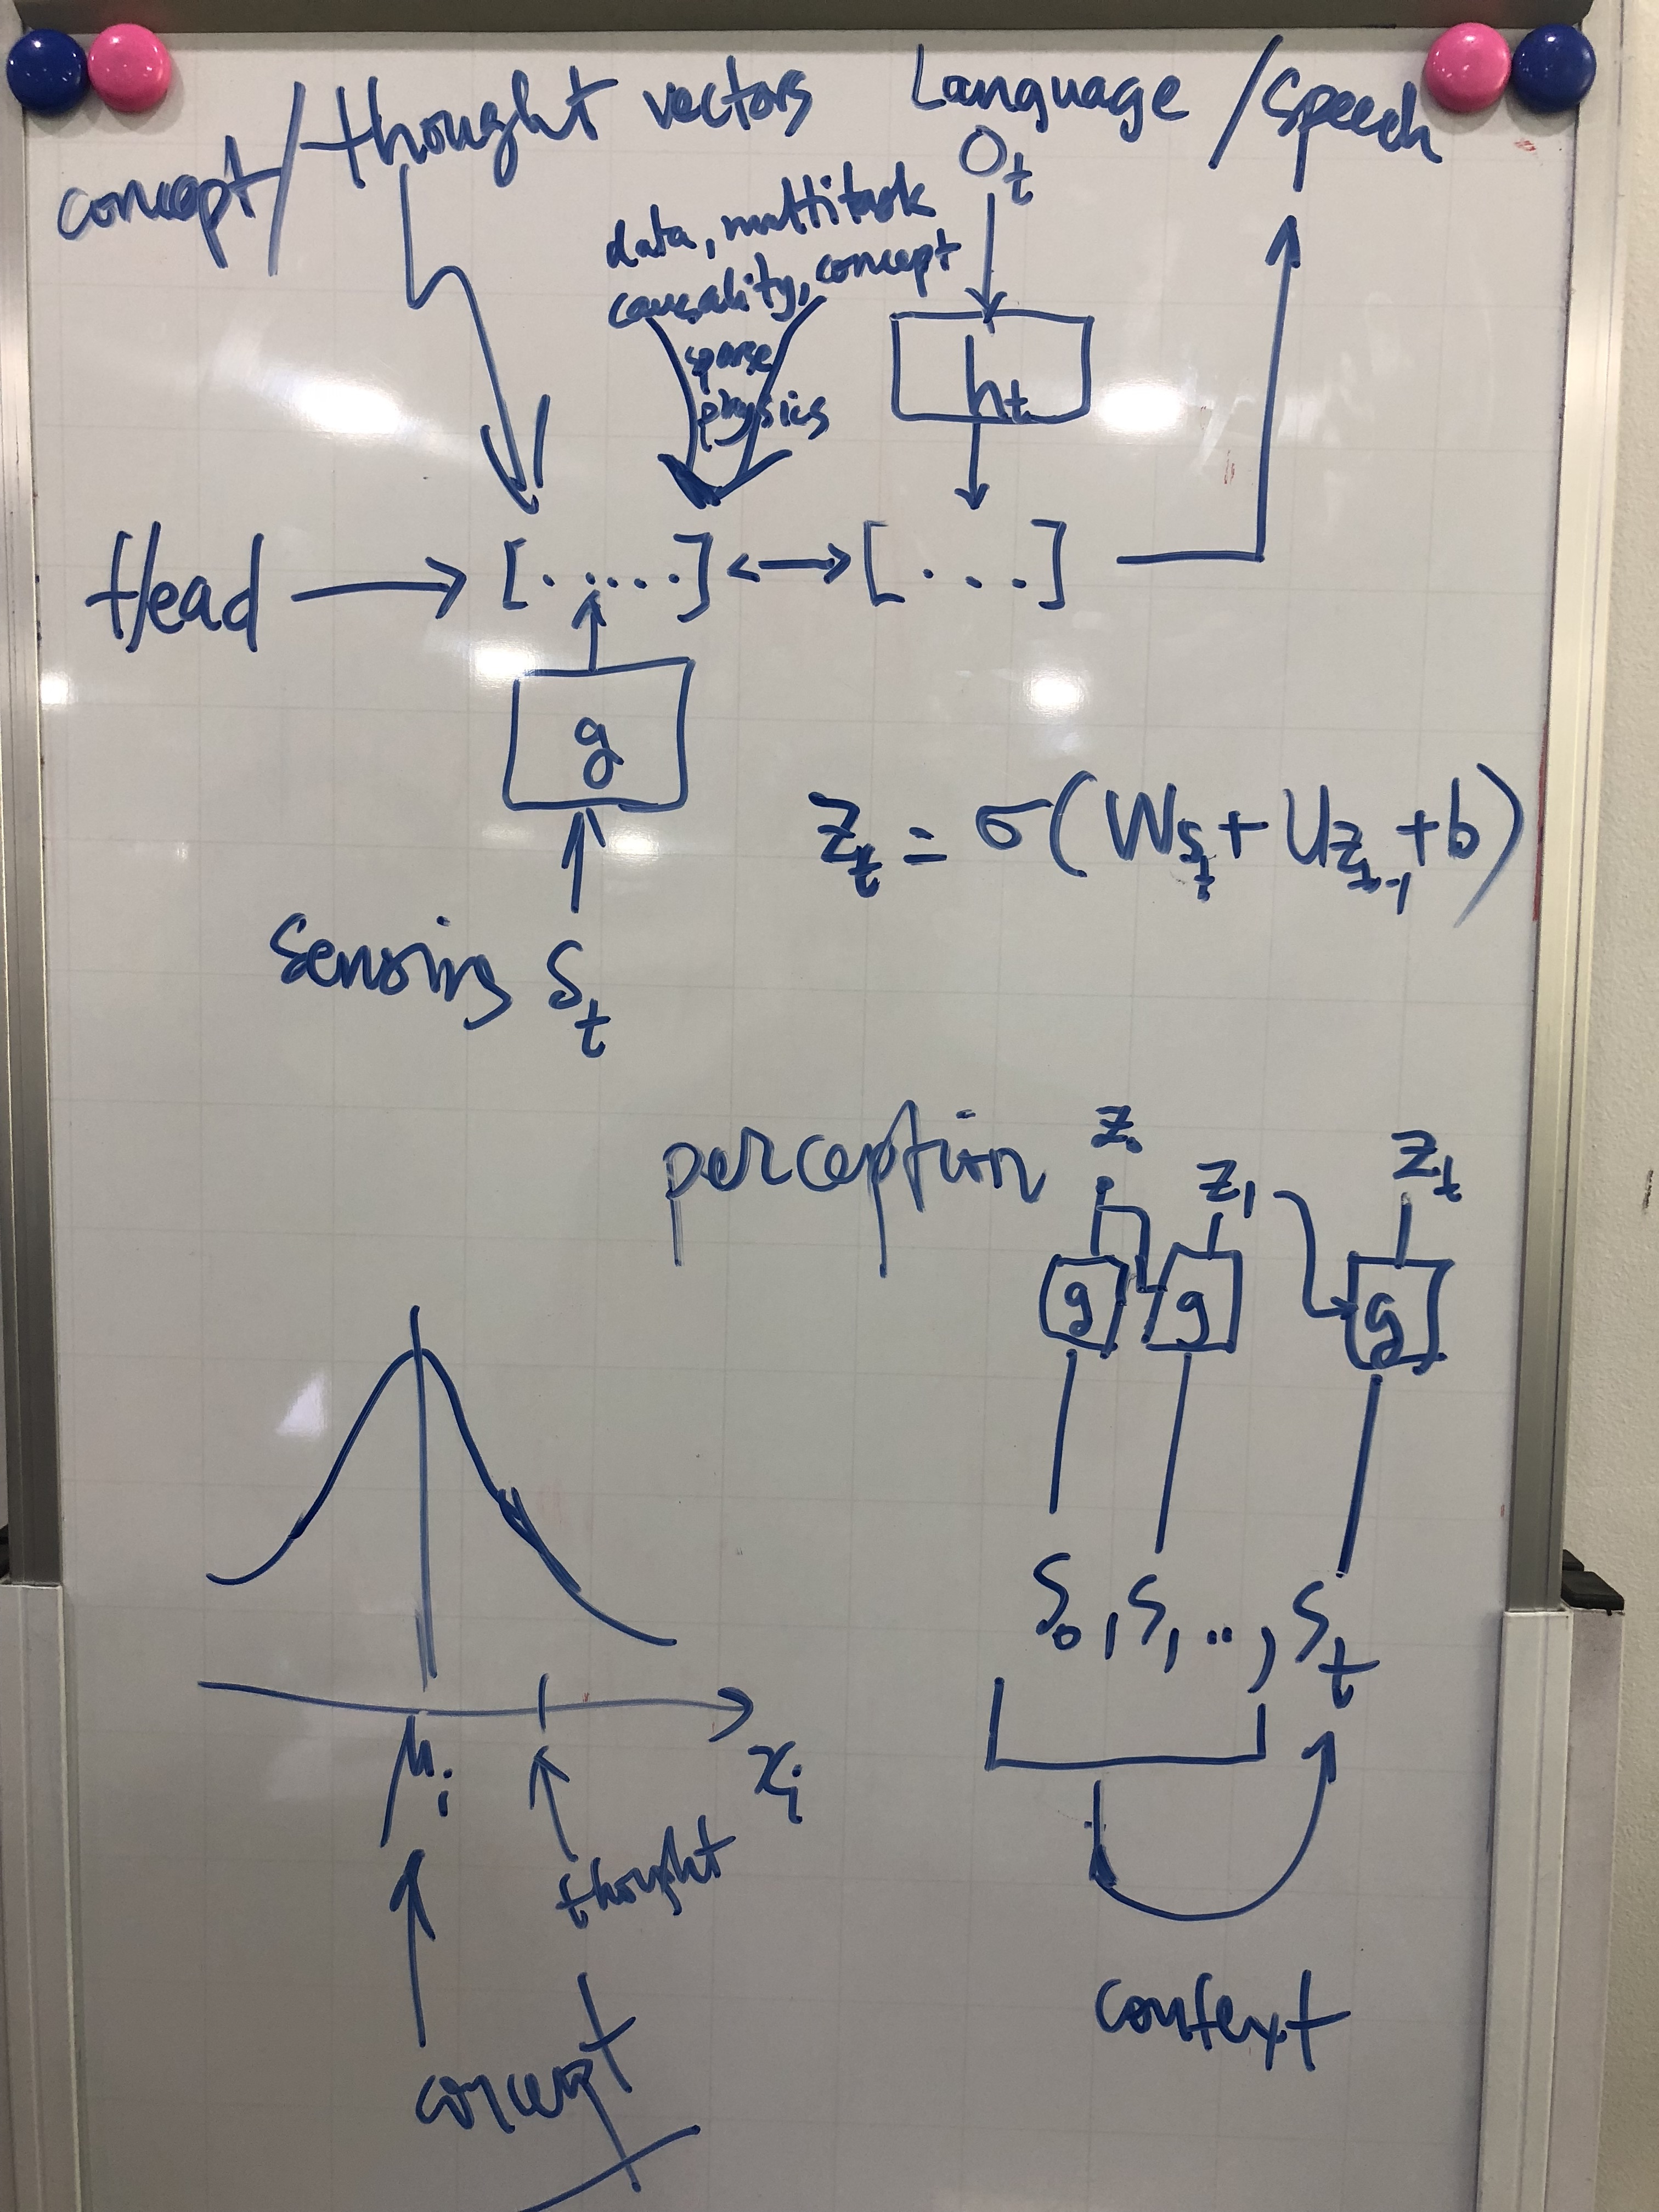 concept/thought vectors
Language/speech
O_t
data, multitask
causality, concept
sparse
physics
h_t
Head → [.....] ↔ [...]
g
z_t = σ(W s_t + U z_{t-1} + b)
Sensing S_t
perception
z_0 z_1 z_t
g g g
S_0, S_1, .., S_t
μ_i x_i
thought
context
concept